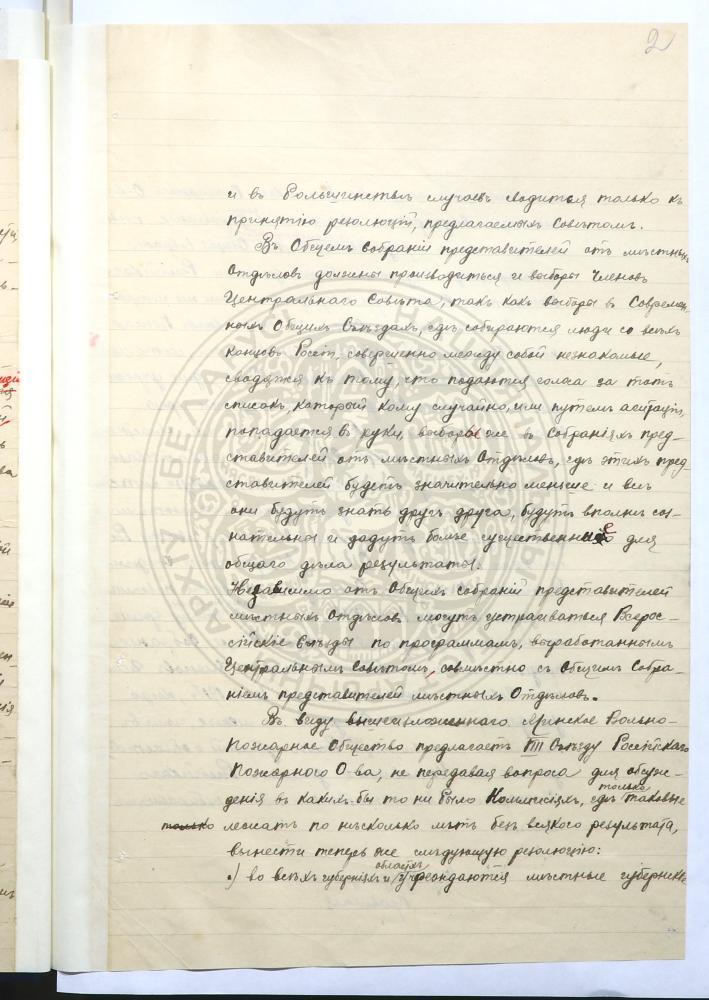 2
и въ большинствѣ случаевъ сводится только къ
принятію резолюцій, предлагаемыхъ Совѣтомъ.
Въ Общемъ собраніи представителей отъ мѣстныхъ
Отдѣловъ должны производиться и выборы Членовъ
Центральнаго Совѣта, такъ какъ выборы въ Современ-
ныхъ Общихъ Съѣздахъ, гдѣ собираются люди со всѣхъ
концовъ Россіи, совершенно между собой незнакомые,
сводятся къ тому, что подаются голоса за тотъ
списокъ, который кому случайно, или путемъ агитаціи,
попадается въ руки, выборы же въ Собраніяхъ пред-
ставителей отъ мѣстныхъ Отдѣловъ, гдѣ этихъ пред-
ставителей будетъ значительно меньше и всѣ
они будутъ знать другъ друга, будутъ вполнѣ соз-
нательны и дадутъ болѣе существенные для
общаго дѣла результаты.
Независимо отъ Общихъ собраній представителей
мѣстныхъ Отдѣловъ могутъ устраиваться Всерос-
сійскіе Съѣзды по программамъ, выработаннымъ
Центральнымъ Совѣтомъ, совмѣстно съ Общимъ Собра-
ніемъ представителей мѣстныхъ Отдѣловъ.
Въ виду вышеизложеннаго Минское Вольно-
Пожарное Общество предлагаетъ VIII Съѣзду Россійскаго
Пожарнаго О-ва, не передавая вопроса для обсуж-
денія въ какихъ-бы то ни было Коммисіяхъ, гдѣ только таковые
только лежатъ по нѣсколько лѣтъ безъ всякаго результата,
вынести теперь же слѣдующую резолюцію:
.) во всѣхъ губерніяхъ и областяхъ учреждаются мѣстные губернскіе